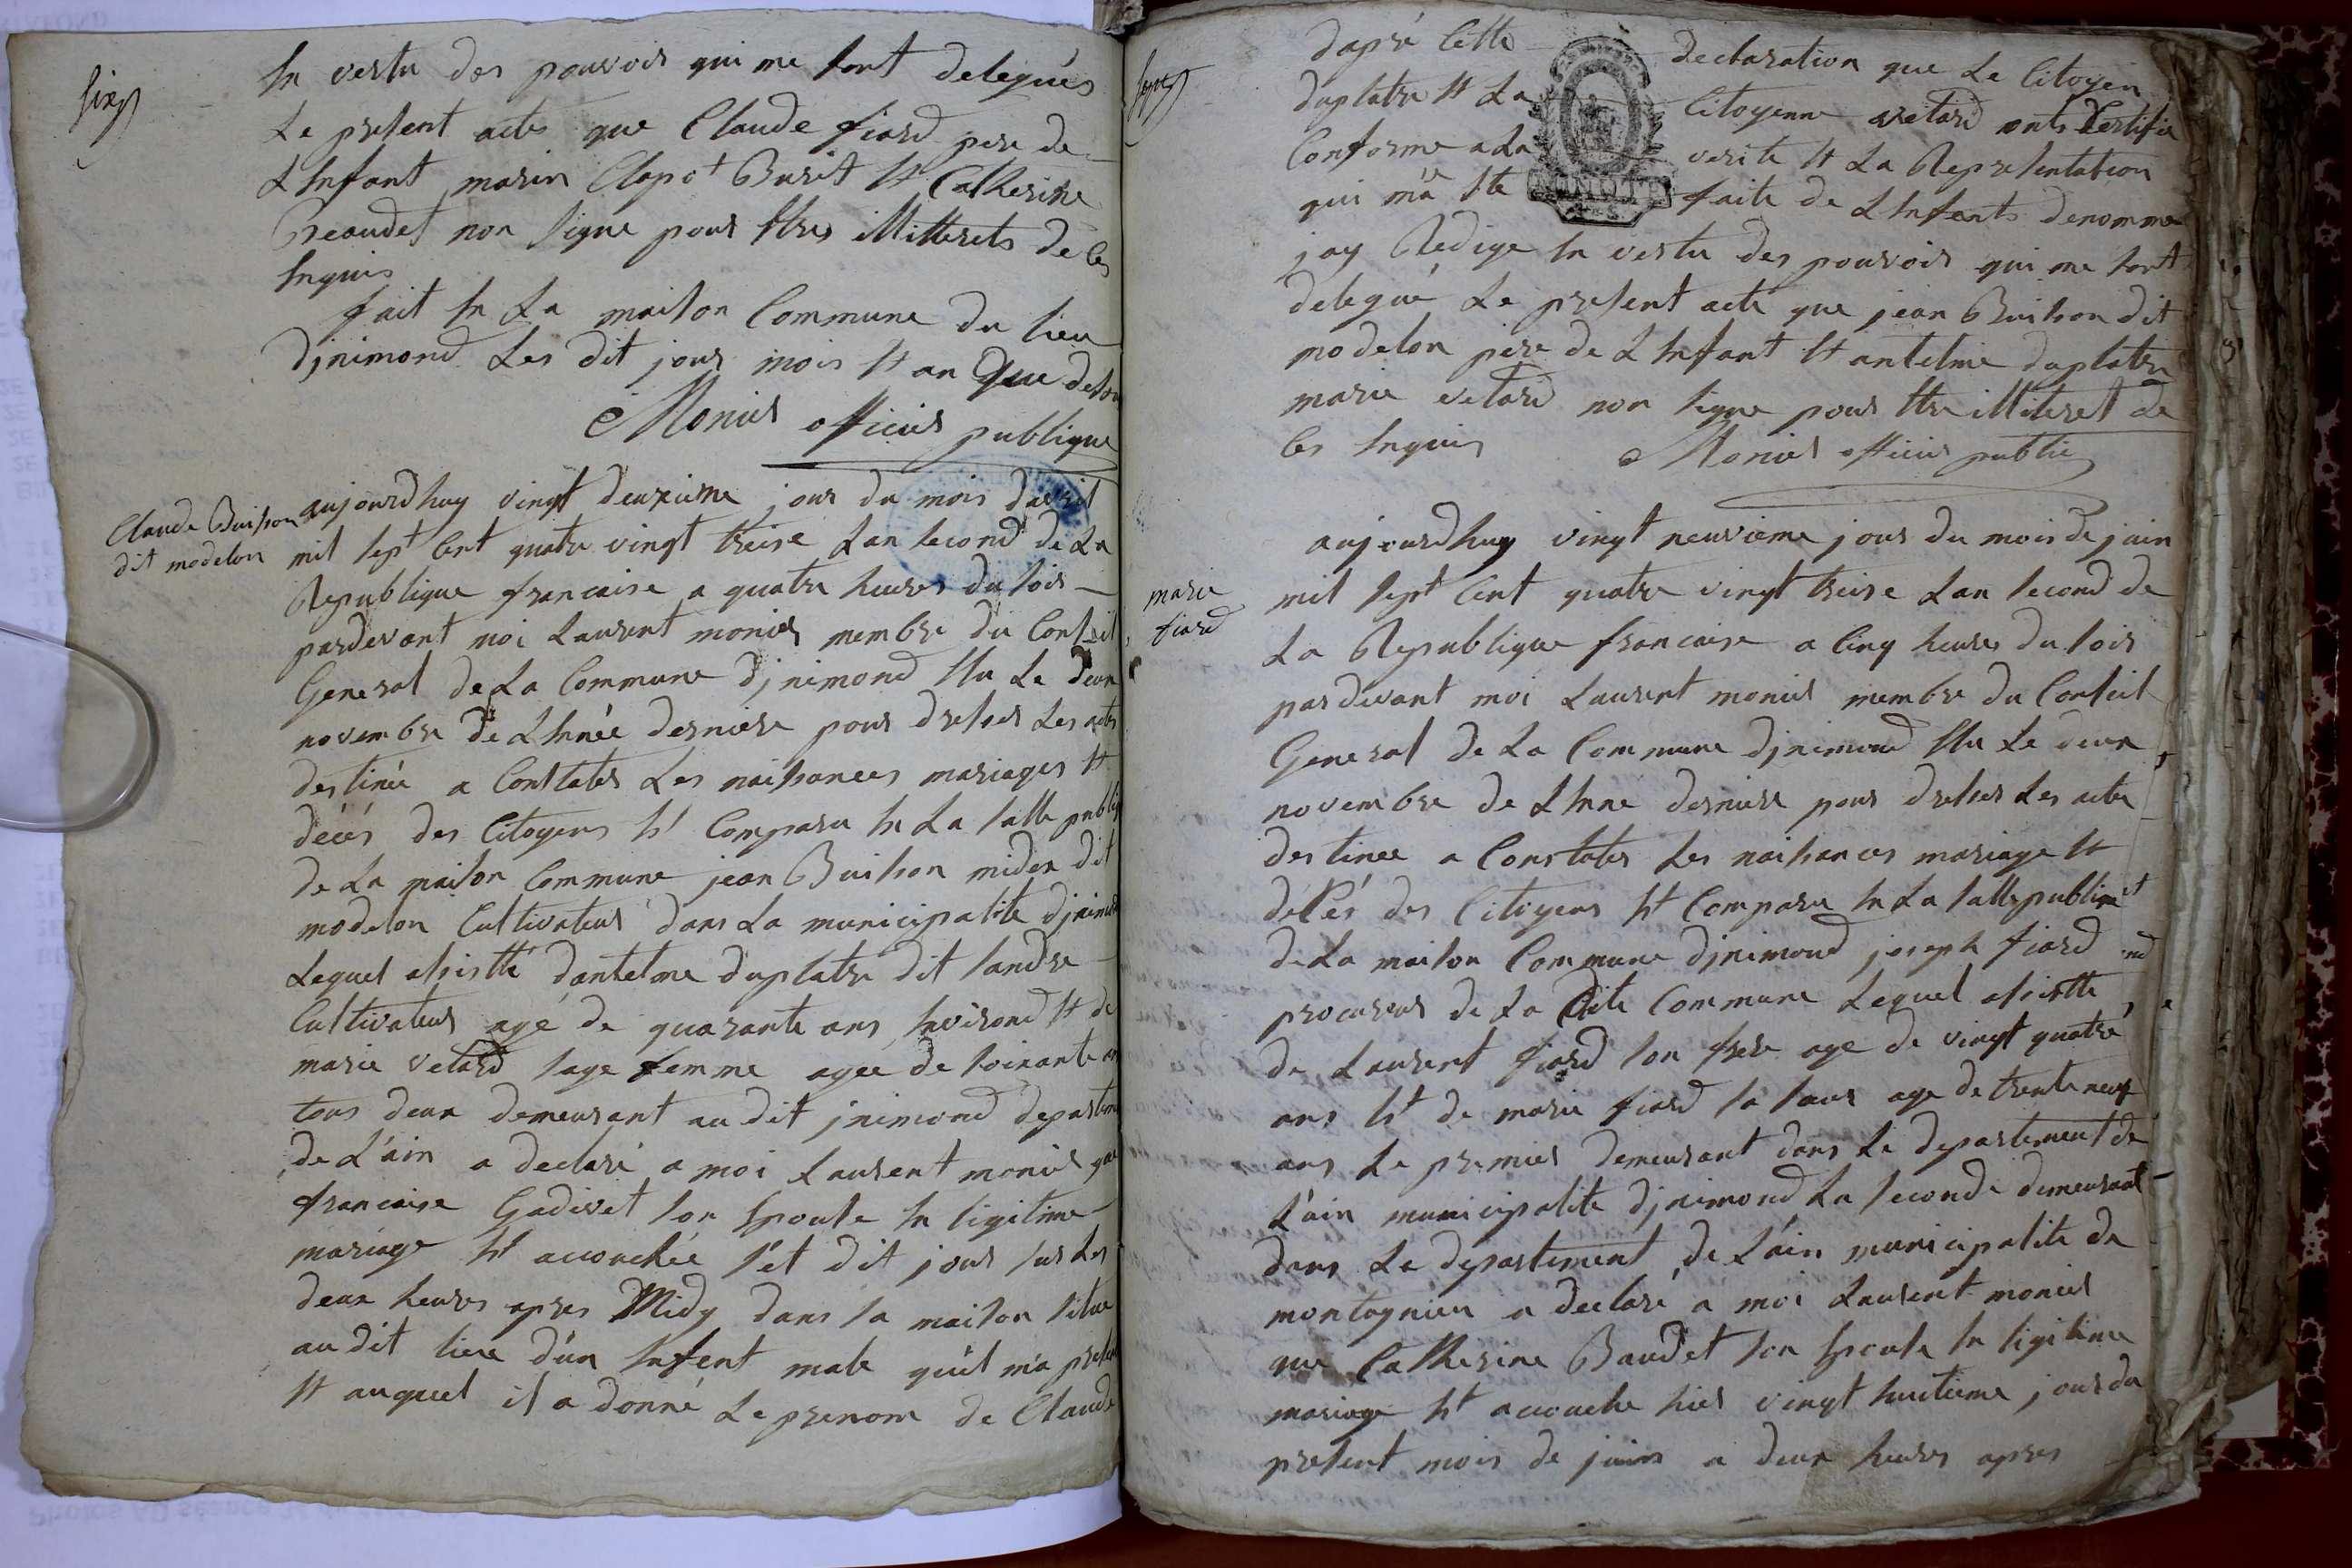 six
En vertu des pouvoirs qui me sont delegués
Le present acte que Claude fiard pere de
L Enfant marin Clapot Burit Et Catherine
Beaudet non signe pour Etres illitterets de les
Enquis
fait En La maison Commune du lieu
Djnimond Les dit jour mois Et an que dessus
Monier officier publique
Claude Buisson
dit modelon
aujourdhuy vingt deuxieme jour du mois davril
mil sept Cent quatre vingt treise Lan second de La
Republique francaise a quatre heures du soir
pardevant moi Laurent monier membre du Conseil
General de La Commune Djnimond Elu Le deux
novembre de L Ennée derniere pour dresser Les actes
destinée a Constater Les naissances mariages Et
décés des Citoyens Et Comparu En La salle publiq
de La maison Commune jean Buisson midon dit
modelon Cultivateur dans La municipalite djnimond
Lequel assistté dantelme duplatre dit landre
Cultivateur agé de quarante ans Environd Et de
marie vetard sage femme agee de soixante an
tous deux demeurant au dit jnimond departem
de L'ain a declaré a moi Laurent monier que
francaise Gadivet son Epouse En ligitime
mariage Et accouchée s'et dit jour sur Les
deux heures apres Midy dans sa maison situe
au dit lieu d'un Enfent male qu'il m'a presen
Et auquel il a donné Le prenom de Claude
sept
dapré Cette declaration que Le Citoyen
duplatre Et La Citoyenne vetard onts Certifie
Conforme a La verite Et La Representation
qui m'a Ete faite de L Enfents denomme
jay Redige En vertu des pouvoir qui me sont
delegué Le present acte que jean Buisson dit
modelon pere de L Enfant Et antelme duplatre
marie vetard non signe pour Etre illiteret de
les Enquis Monier officier public
marie
fiard
aujourdhuy vingt neuvieme jour du mois de juin
mil sept Cent quatre vingt treise Lan second de
La Republique francaise a Cinq heures du soir
pardevant moi Laurent monier membre du Conseil
General de La Commune Djnimond Elu Le deux
novembre de L Enne derniere pour dresser Les actes
destinee a Constater Les naissances mariage Et
déCés des Citoyens Et Comparu En La salle publique
de La maison Commune Djnimond joseph fiard
procureur de La dite Commune Lequel assistte
de Laurent fiard son frere age de vingt quatre
ans Et de marie fiard sa seur age de trente neuf
ans Le premier demeurant dans Le departement de
L'ain municipalite djnimond La seconde demeurant
dans Le departement de L'ain municipalite de
montagnieu a declaré a moi Laurent monier
que Catherine Baudet son Epouse En ligitime
mariage Et accouche hier vingt huitieme jour du
present mois de juin a deux heures apres